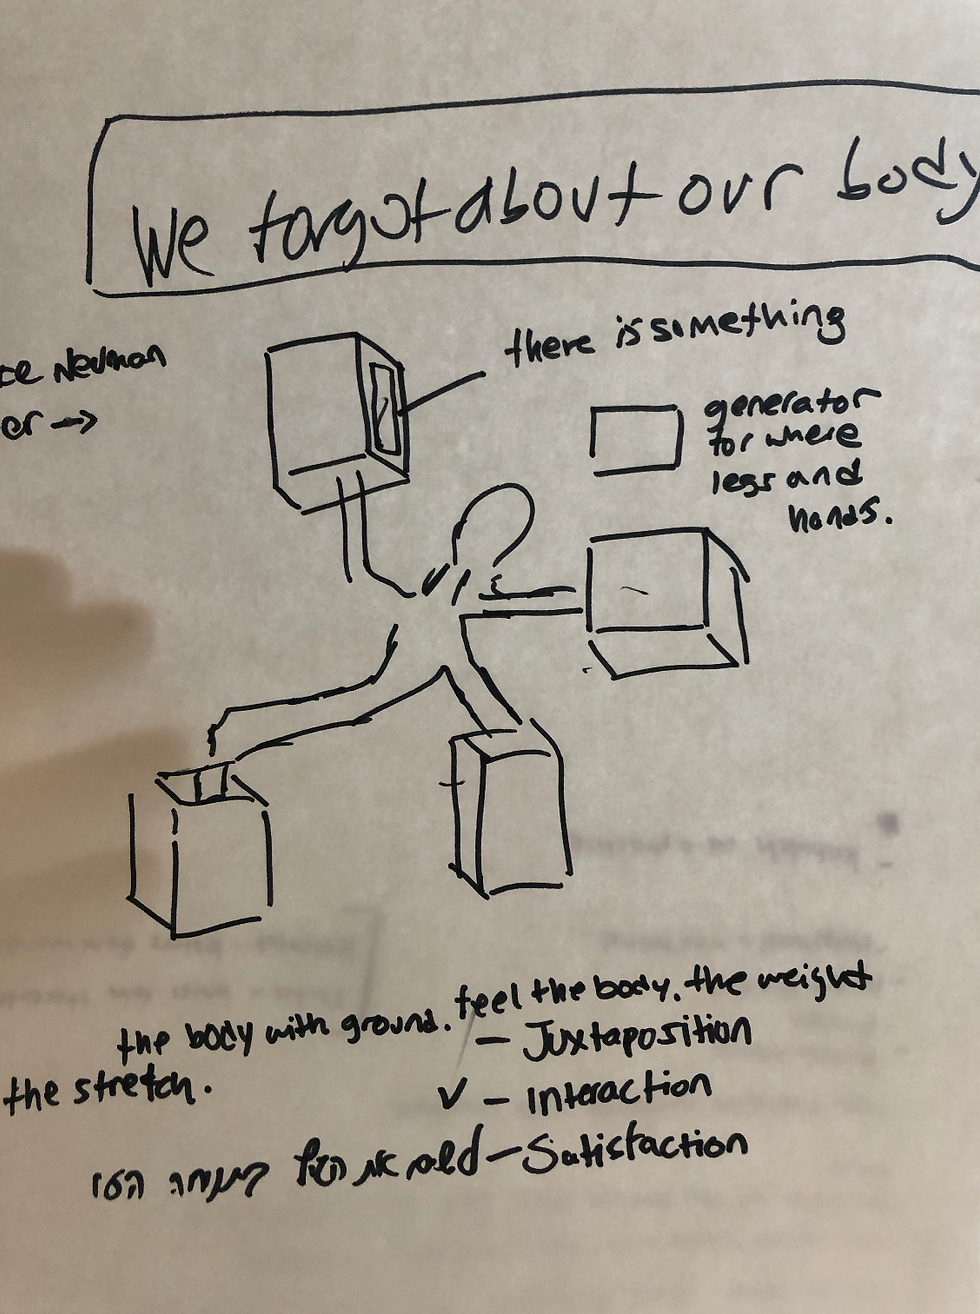 We forgot about our body
Neuman
there is something
generator
for where
legs and
hands.
the body with ground. feel the body. the weight
the stretch.
– Juxtaposition
✓ – Interaction
– Satisfaction